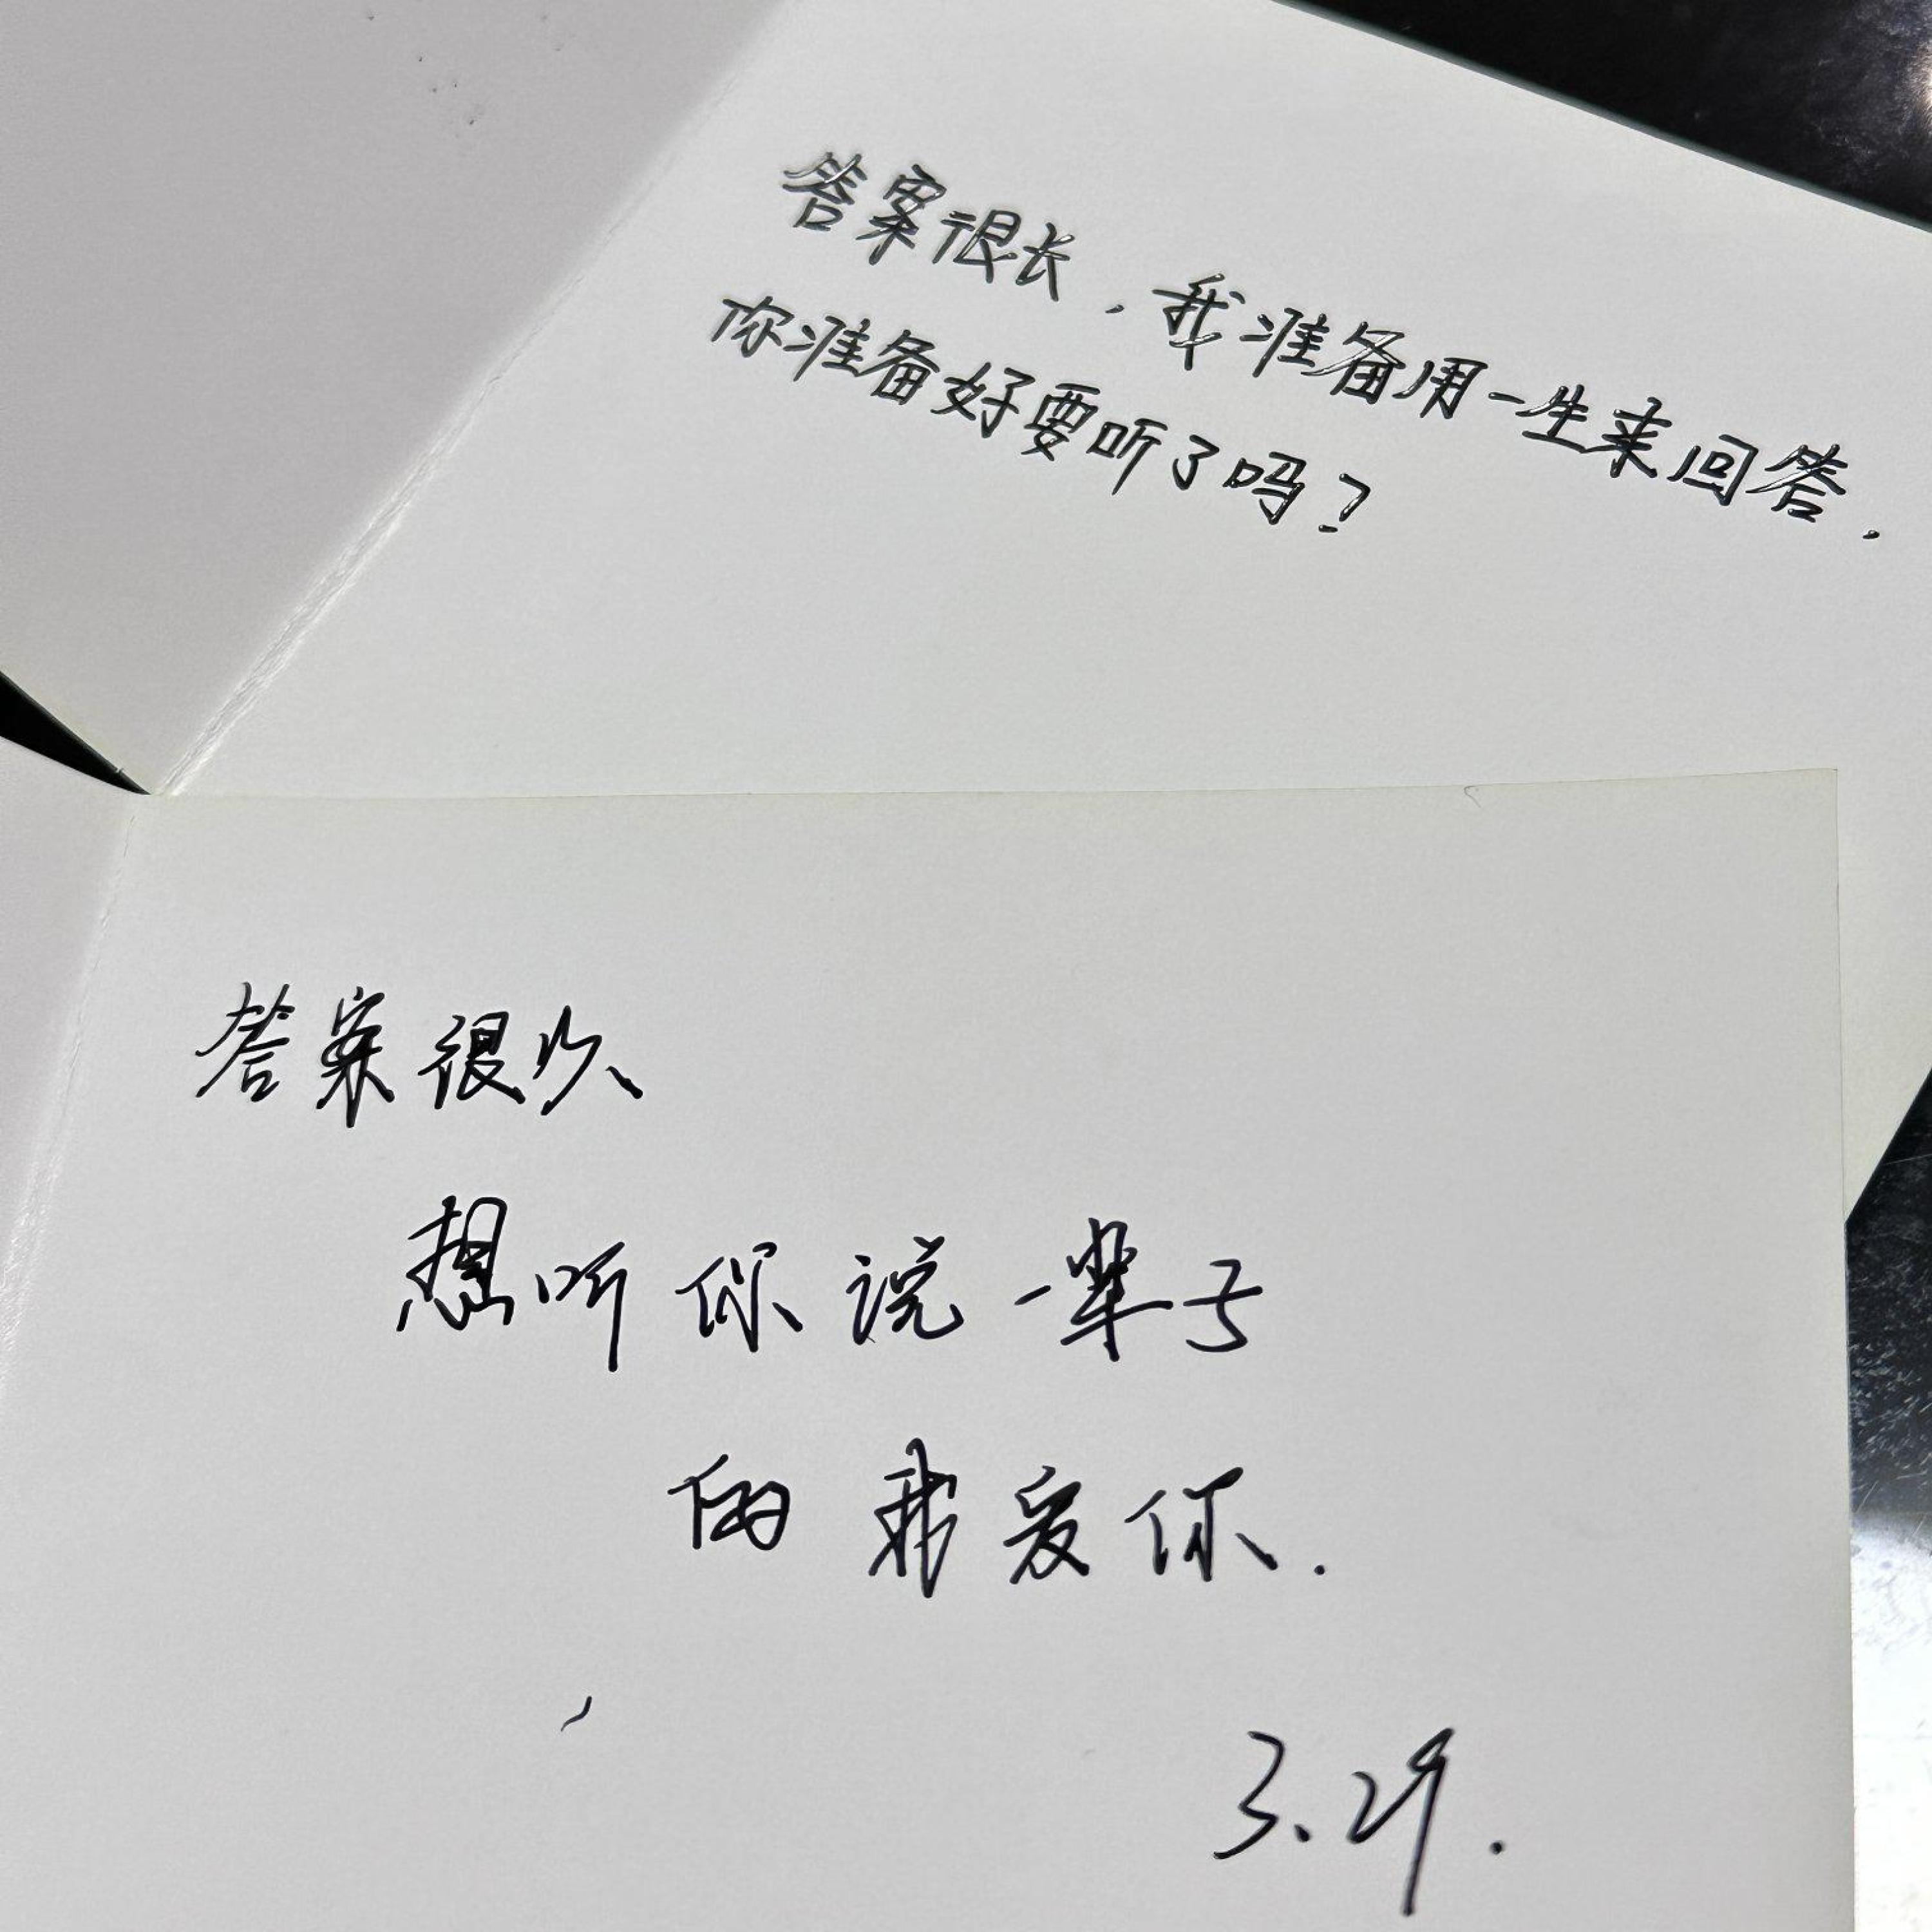 答案很长，我准备用一生来回答，
你准备好要听了吗？
答案很久
想听你说一辈子
的我爱你.
3.29.